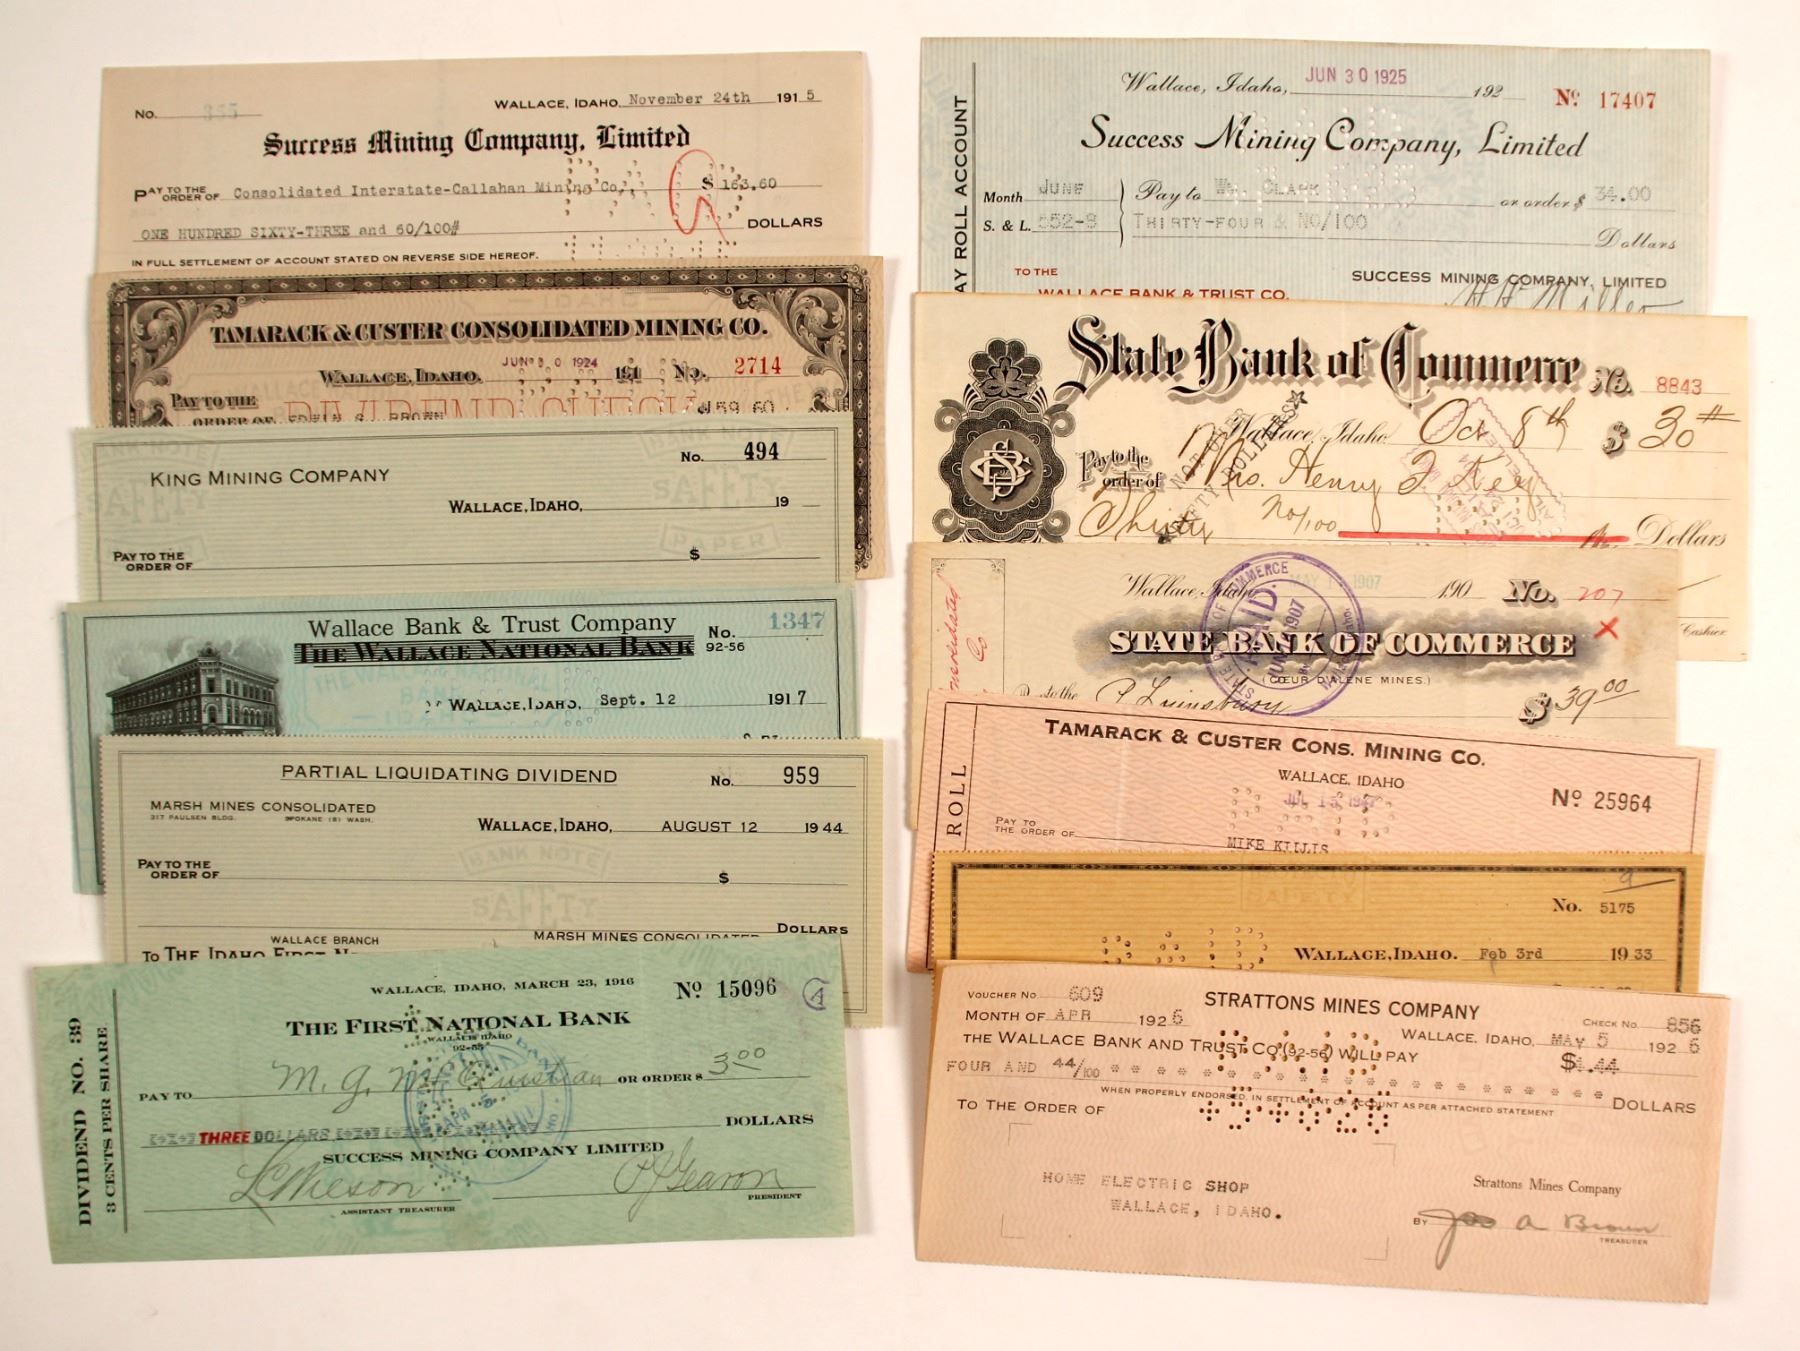 No. 355
WALLACE, IDAHO, November 24th 1915
Success Mining Company, Limited
PAY TO THE ORDER OF Consolidated Interstate-Callahan Mining Co., $ 163.60
ONE HUNDRED SIXTY-THREE and 60/100# DOLLARS
IN FULL SETTLEMENT OF ACCOUNT STATED ON REVERSE SIDE HEREOF.
TAMARACK & CUSTER CONSOLIDATED MINING CO.
WALLACE, IDAHO, JUN 30 1924 191 No. 2714
PAY TO THE ORDER OF EDWIN S. BROWN
DIVIDEND CHECK
KING MINING COMPANY
No. 494
WALLACE, IDAHO, 19
PAY TO THE ORDER OF $
BANK NOTE
SAFETY
PAPER
Wallace Bank & Trust Company
THE WALLACE NATIONAL BANK
No. 1347
92-56
WALLACE, IDAHO, Sept. 12 1917
PARTIAL LIQUIDATING DIVIDEND
No. 959
MARSH MINES CONSOLIDATED
317 PAULSEN BLDG. SPOKANE (8) WASH.
WALLACE, IDAHO, AUGUST 12 1944
PAY TO THE ORDER OF $
BANK NOTE
SAFETY
DOLLARS
WALLACE BRANCH
MARSH MINES CONSOLIDATED
TO THE IDAHO FIRST
DIVIDEND NO. 39
3 CENTS PER SHARE
WALLACE, IDAHO, MARCH 23, 1916 No 15096
THE FIRST NATIONAL BANK
WALLACE IDAHO
92-55
PAY TO M. G. OR ORDER $ 3.00
THREE DOLLARS DOLLARS
SUCCESS MINING COMPANY LIMITED
ASSISTANT TREASURER
P J Gearon
PRESIDENT
PAY ROLL ACCOUNT
Wallace, Idaho, JUN 30 1925 192 No 17407
Success Mining Company, Limited
Month JUNE
S. & L. 552-8
Pay to Wm. CLARK or order $ 34.00
THIRTY-FOUR & NO/100 Dollars
TO THE
WALLACE BANK & TRUST CO.
SUCCESS MINING COMPANY, LIMITED
State Bank of Commerce
No. 8843
Wallace, Idaho Oct 8th $ 30
Pay to the order of Mrs. Henry
Thirty No/100 Dollars
NOT OVER FIFTY DOLLARS
Cashier
Wallace, Idaho MAY 1907 190 No. 207
STATE BANK OF COMMERCE
(COEUR D'ALENE MINES.)
PAID
$ 39.00
TAMARACK & CUSTER CONS. MINING CO.
WALLACE, IDAHO
JUL 15 No 25964
ROLL
PAY TO THE ORDER OF MIKE KILLIS
SAFETY
No. 5175
WALLACE, IDAHO. Feb 3rd 1933
VOUCHER NO 609
STRATTONS MINES COMPANY
CHECK NO. 856
MONTH OF APR 1926
WALLACE, IDAHO, MAY 5 1926
THE WALLACE BANK AND TRUST CO. (92-56) WILL PAY $4.44
FOUR AND 44/100 DOLLARS
WHEN PROPERLY ENDORSED, IN SETTLEMENT OF ACCOUNT AS PER ATTACHED STATEMENT
TO THE ORDER OF
HOME ELECTRIC SHOP
WALLACE, IDAHO.
Strattons Mines Company
BY Jas A Brown
TREASURER